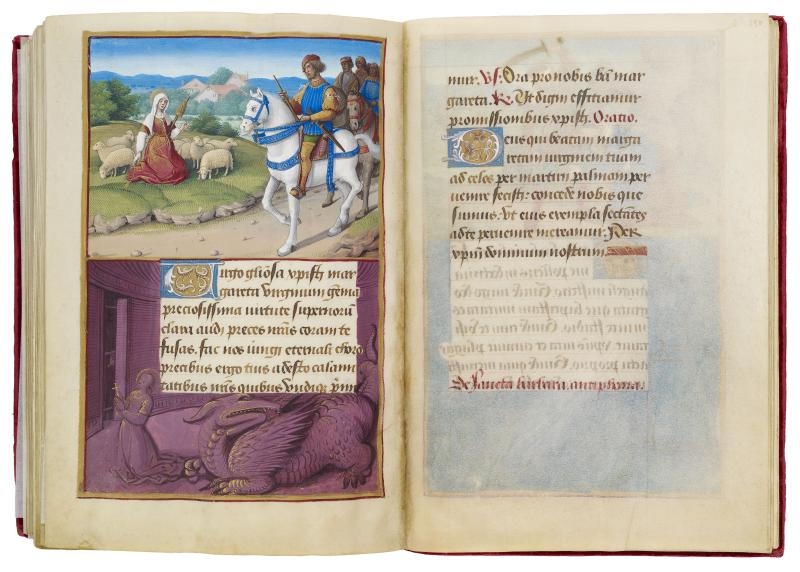 Virgo gliosa xpisti mar
gareta virginum gema
preciosissima virtute supernorū
clara audi preces nr̄as coram te
fusas. fac nos iungi eternali choro
precibus ergo tuis adesto calami
tatibus nr̄is quibus vndiqꝫ prim
mur. Vs. Ora pro nobis bā mar
gareta. R. Vt digni efficiamur
promissionibus xpisti. Oratio.
Deus qui beatam marga
retam virginem tuam
ad celos per martirii palmam per
uenire fecisti: concede nobis que
sumus: vt eius exempla sectātes
ad te peruenire mereamur. Per
xpm̄ dominum nostrum.
De sancta barbara. antiphona.